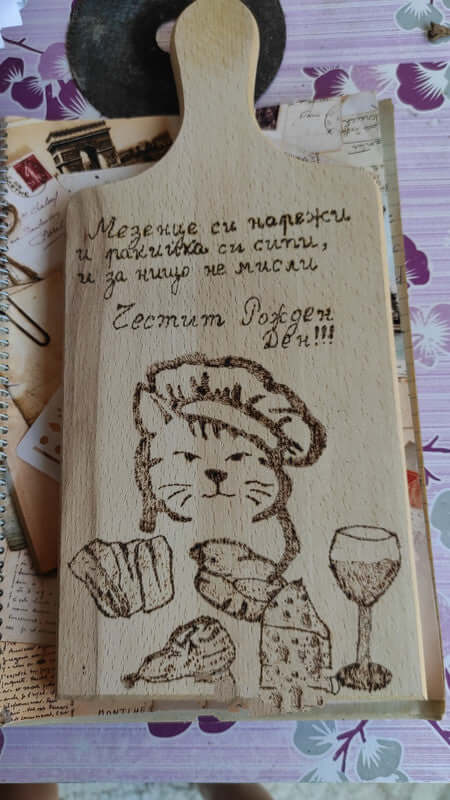 Мезенце си нарежи
и ракийка си сипи,
и за нищо не мисли
Честит Рожден
Ден!!!